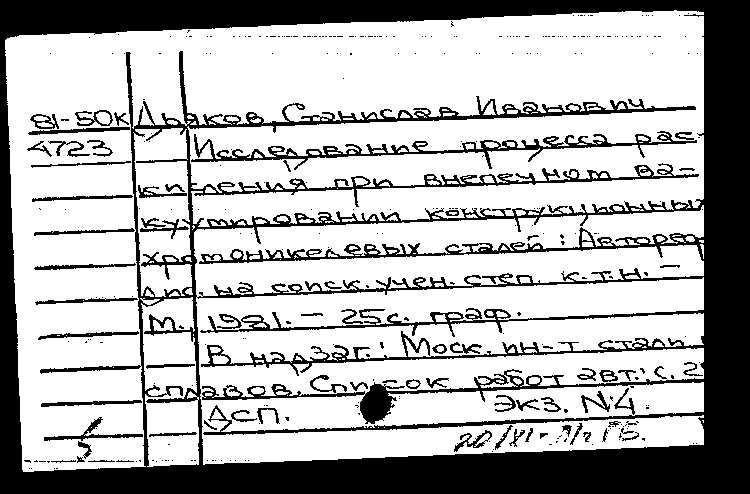 81-50к Дьяков, Станислав Иванович.
4723 Исследование процесса рас-
кисления при внепечном ва-
куумировании конструкционных
хромоникелевых сталей: Автореф.
дис. на соиск. учен. степ. к.т.н. –
М., 1981. – 25 с., граф.
В надзаг.: Моск. ин-т стали и
сплавов. Список работ авт.: с. 2
ДСП. Экз. №4.
5